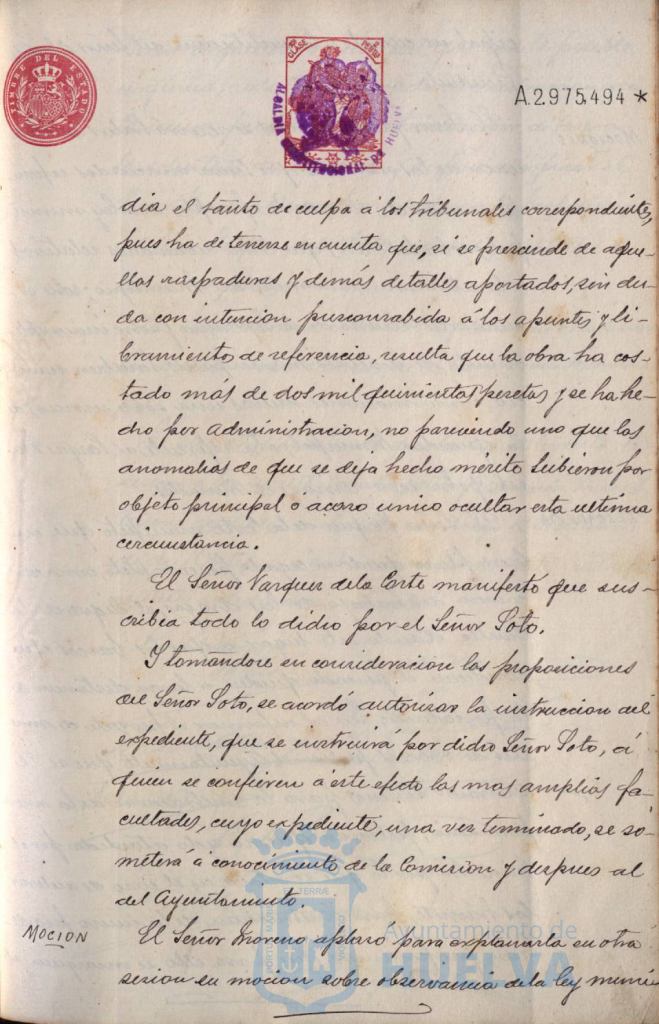 TIMBRE DEL ESTADO
CLASE
ALCALDIA CONSTITUCIONAL DE HUELVA
A.2.975.494 *
dia el tanto de culpa á los tribunales correspondientes,
pues ha de tenerse en cuenta que, si se prescinde de aque-
llas raspaduras y demás detalles aportados, sin du-
da con intencion preconcebida á los apuntes y li-
bramientos de referencia, resulta que la obra ha cos-
tado más de dos mil quinientas pesetas y se ha he-
cho por administracion, no pareciendo sino que las
anomalias de que se deja hecho mérito tubieron por
objeto principal ó acaso unico ocultar esta ultima
circunstancia.
El Señor Vazquez de la Corte manifestó que sus-
cribia todo lo dicho por el Señor Soto.
Y tomándose en consideracion las proposiciones
del Señor Soto, se acordó autorizar la instruccion del
expediente, que se instruirá por dicho Señor Soto, á
quien se confieren á este efecto las mas amplias fa-
cultades, cuyo expediente, una vez terminado, se so-
meterá á conocimiento de la Comision y despues al
del Ayuntamiento.
MOCION
El Señor Moreno aplazó para explanarla en otra
sesion su mocion sobre observancia de la ley muni-
Ayuntamiento de
HUELVA